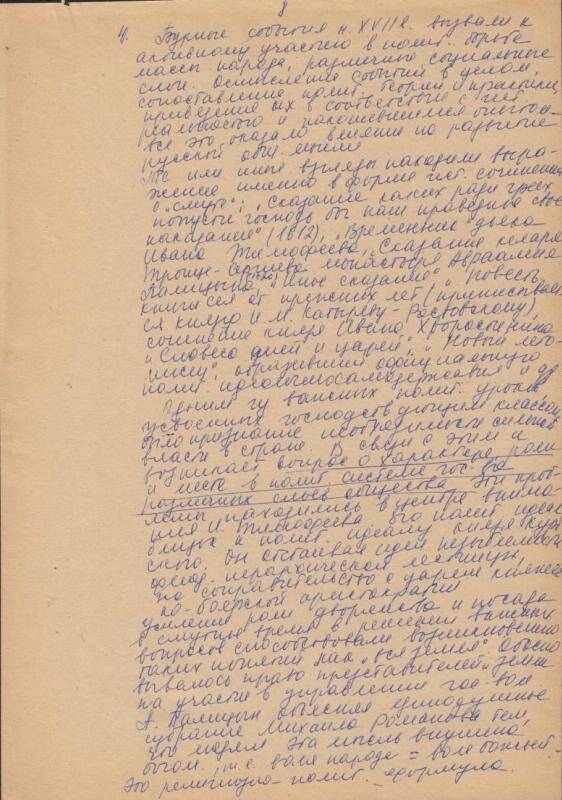 8
4. Бурные события н. XVII в. вызвали к
активному участию в полит. борьбе
массы народа, различные социальные
слои. Осмысление событий в целом,
сопоставление полит. теории и практики,
приведение их в соответствие с
реальностью и накопившимся опытом –
все это оказало влияние на развитие
русской общ. мысли
Те или иные взгляды находили выра-
жение именно в форме ист. сочинений
о "смуте": "Сказание каких ради грех
попусти господь бог наш праведное свое
наказание" (1612), "Временник" дьяка
Ивана Тимофеева, Сказание келаря
Троице-Сергиева монастыря Авраамия
Палицына, "Иное сказание", "Повесть
книги сея от прежних лет (приписывает-
ся князю И. М. Катыреву-Ростовскому),
сочинение князя Ивана Хворостинина
"Словеса дней и царей", "Новый лето-
писец", отразивший официальную
полит. идеологию самодержавия и др
Одним из важных полит. уроков
усвоенных господствующим классом
было признание необходимости сильной
власти в стране. В связи с этим и
возникает вопрос о характере, роли
и месте в полит. системе гос-ва
различных слоев общества. Эти проб-
лемы находились в центре внима-
ния И. Тимофеева. Его полит. идеал
близок к полит. идеалу князя Курб
ского. Он отстаивал идеи незыблемости
феод. иерархической лестницы,
на соправительство с царем княжес
ко-боярской аристократии
Усиление роли дворянства и посада
в смутное время в решении важных
вопросов способствовали возникновению
таких понятий как "вся земля". Обосно
вывалось право представителей "земли
на участие в управлении гос-вом
А. Палицын объяснял единодушное
избрание Михаила Романова тем,
что людям эта мысль внушена
богом, т.е. воля народа = воле божьей.
Это религиозно-полит. формула.